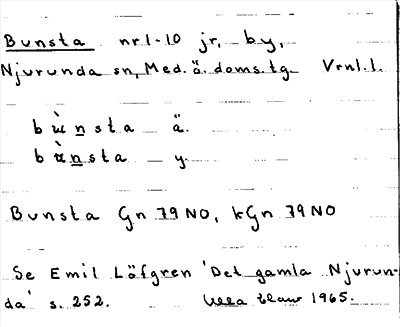 Bunsta nr 1-10 jr, by,
Njurunda sn, Med. ä. doms. tg. Vrnl. l.
bùnsta ä.
bùnsta y.
Bunsta Gn 79 NO, kGn 79 NO
Se Emil Löfgren 'Det gamla Njurun-
da' s. 252. 1965.